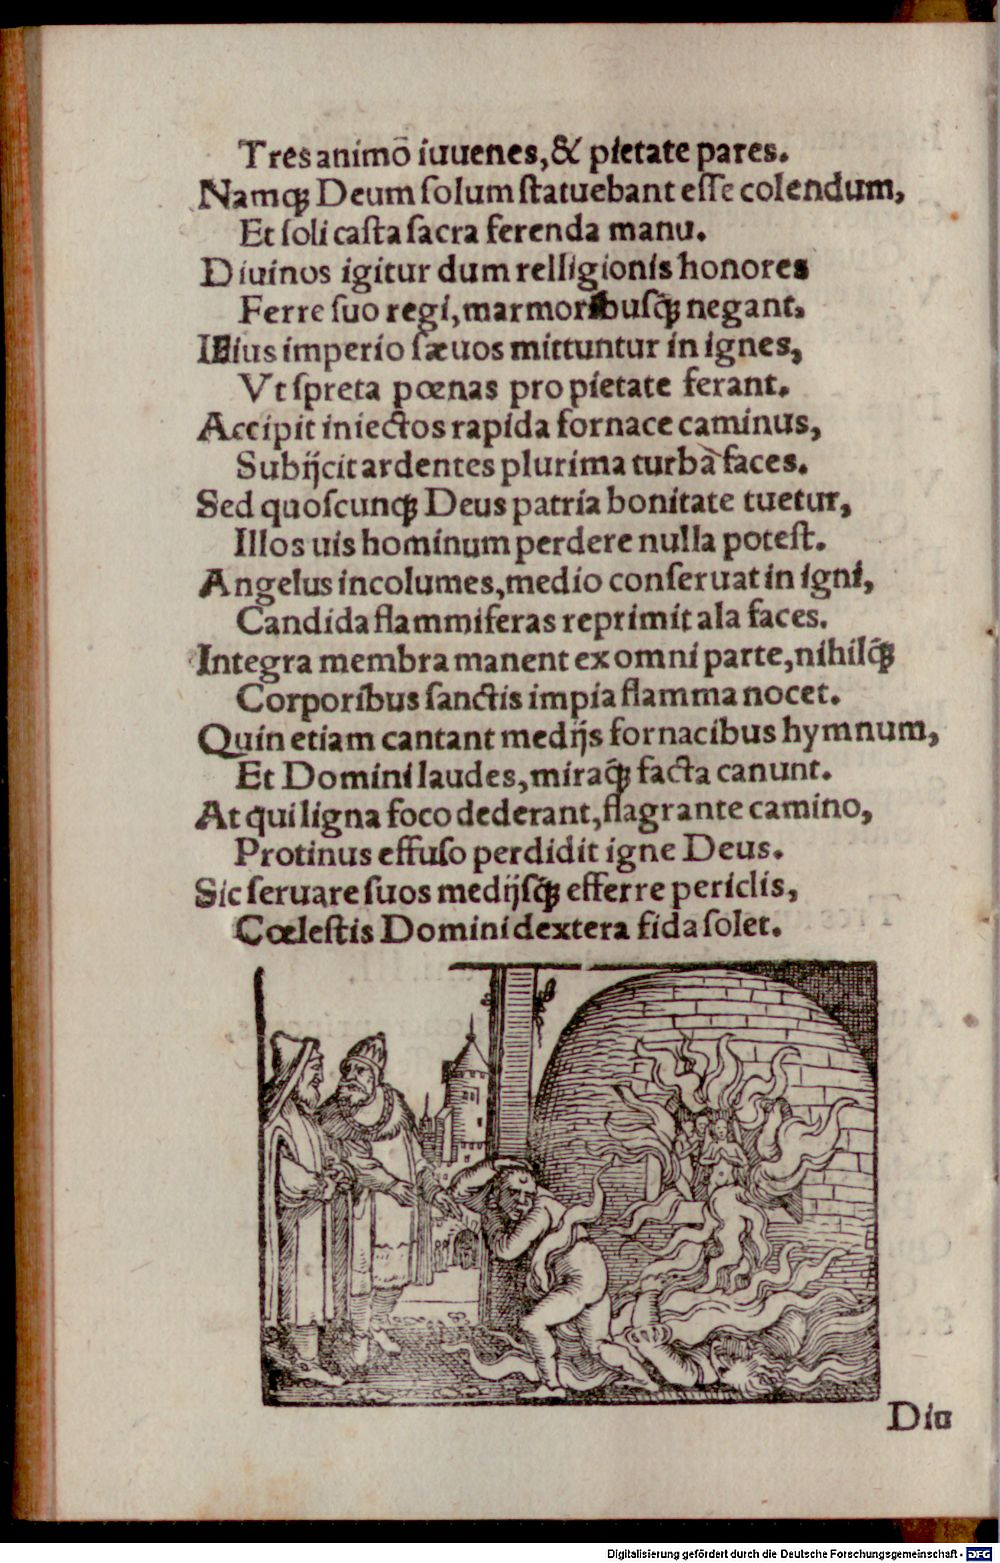 Tres animo iuuenes, & pietate pares.
Namq; Deum ſolum ſtatuebant eſſe colendum,
Et ſoli caſta ſacra ferenda manu.
Diuinos igitur dum relligionis honores
Ferre ſuo regi, marmoribuſq́; negant,
Illius imperio ſæuos mittuntur in ignes,
Vt ſpreta pœnas pro pietate ferant.
Accipit iniectos rapida fornace caminus,
Subijcit ardentes plurima turba faces.
Sed quoſcunq; Deus patria bonitate tuetur,
Illos uis hominum perdere nulla poteſt.
Angelus incolumes, medio conſeruat in igni,
Candida flammiferas reprimit ala faces.
Integra membra manent ex omni parte, nihilq́;
Corporibus ſanctis impia flamma nocet.
Quin etiam cantant medijs fornacibus hymnum,
Et Domini laudes, miraq́; facta canunt.
At qui ligna foco dederant, flagrante camino,
Protinus effuſo perdidit igne Deus.
Sic ſeruare ſuos medijſq́; efferre periclis,
Cœleſtis Domini dextera fida ſolet.
Diu
Digitalisierung gefördert durch die Deutsche Forschungsgemeinschaft - DFG